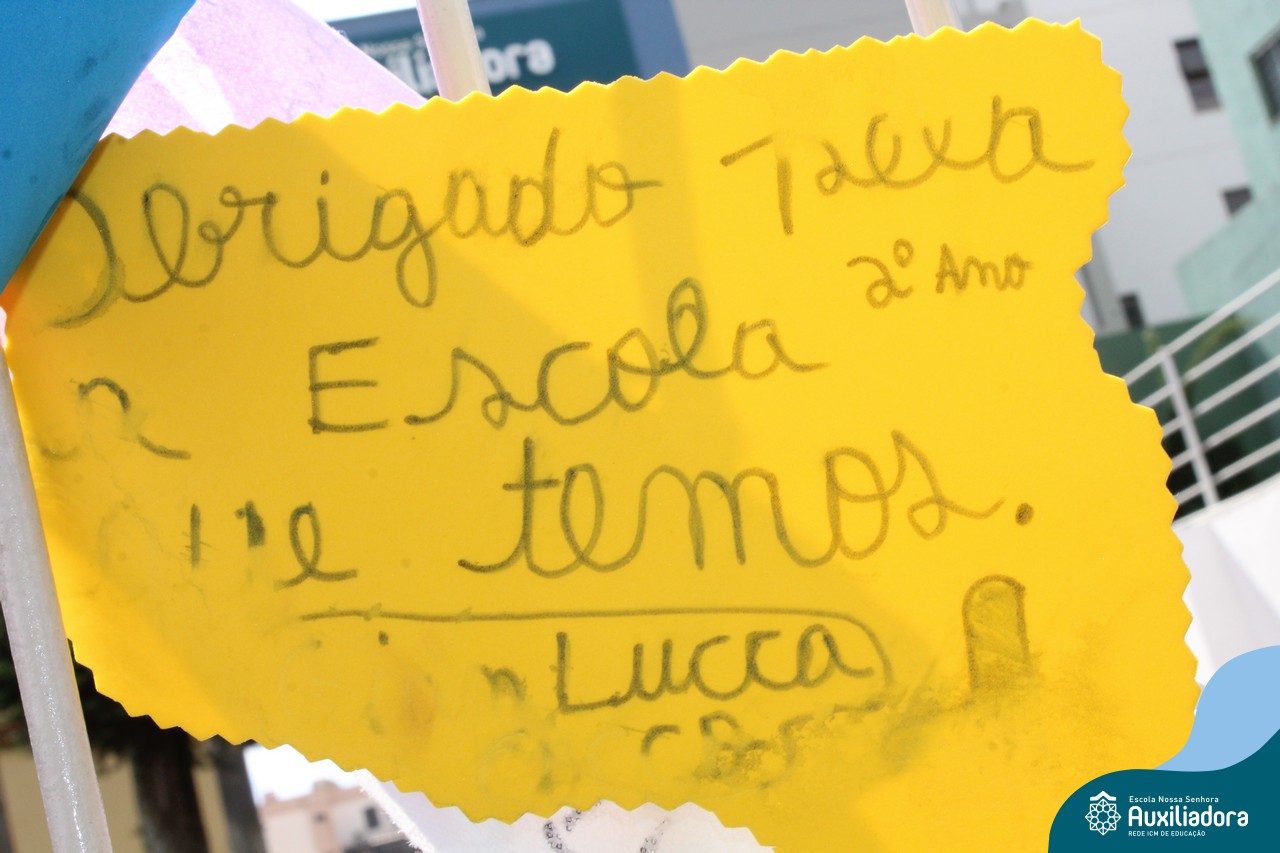 Auxiliadora
Obrigado
2º Ano
Escola
temos.
Lucca
Escola Nossa Senhora
Auxiliadora
REDE ICM DE EDUCAÇÃO